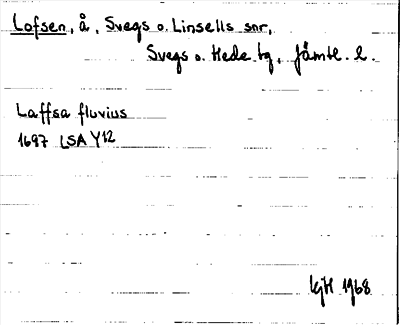 Lofsen, å, Svegs o. Linsells snr,
Svegs o. Hede tg, Jämtl. l.
Laffsa fluvius
1697 LSA Y12
KgH 1968